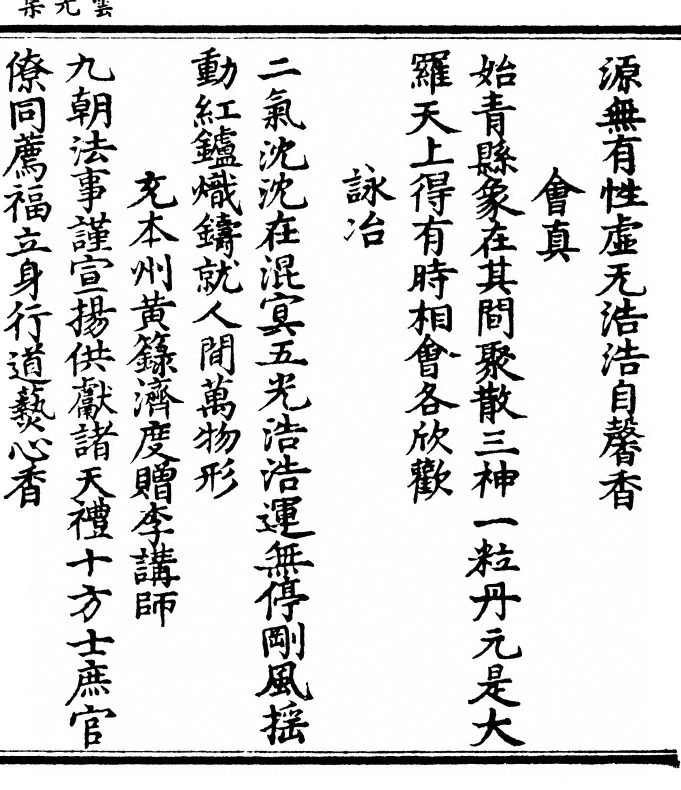 源無有性虛无浩浩自馨香
會真
始青縣象在其間聚散三神一粒丹元是大
羅天上得有時相會各欣歡
詠冶
二氣沈沈在混冥五光浩浩運無停剛風搖
動紅鑪熾鑄就人間萬物形
充本州黃籙濟度贈李講師
九朝法事謹宣揚供獻諸天禮十方士庶官
僚同薦福立身行道爇心香